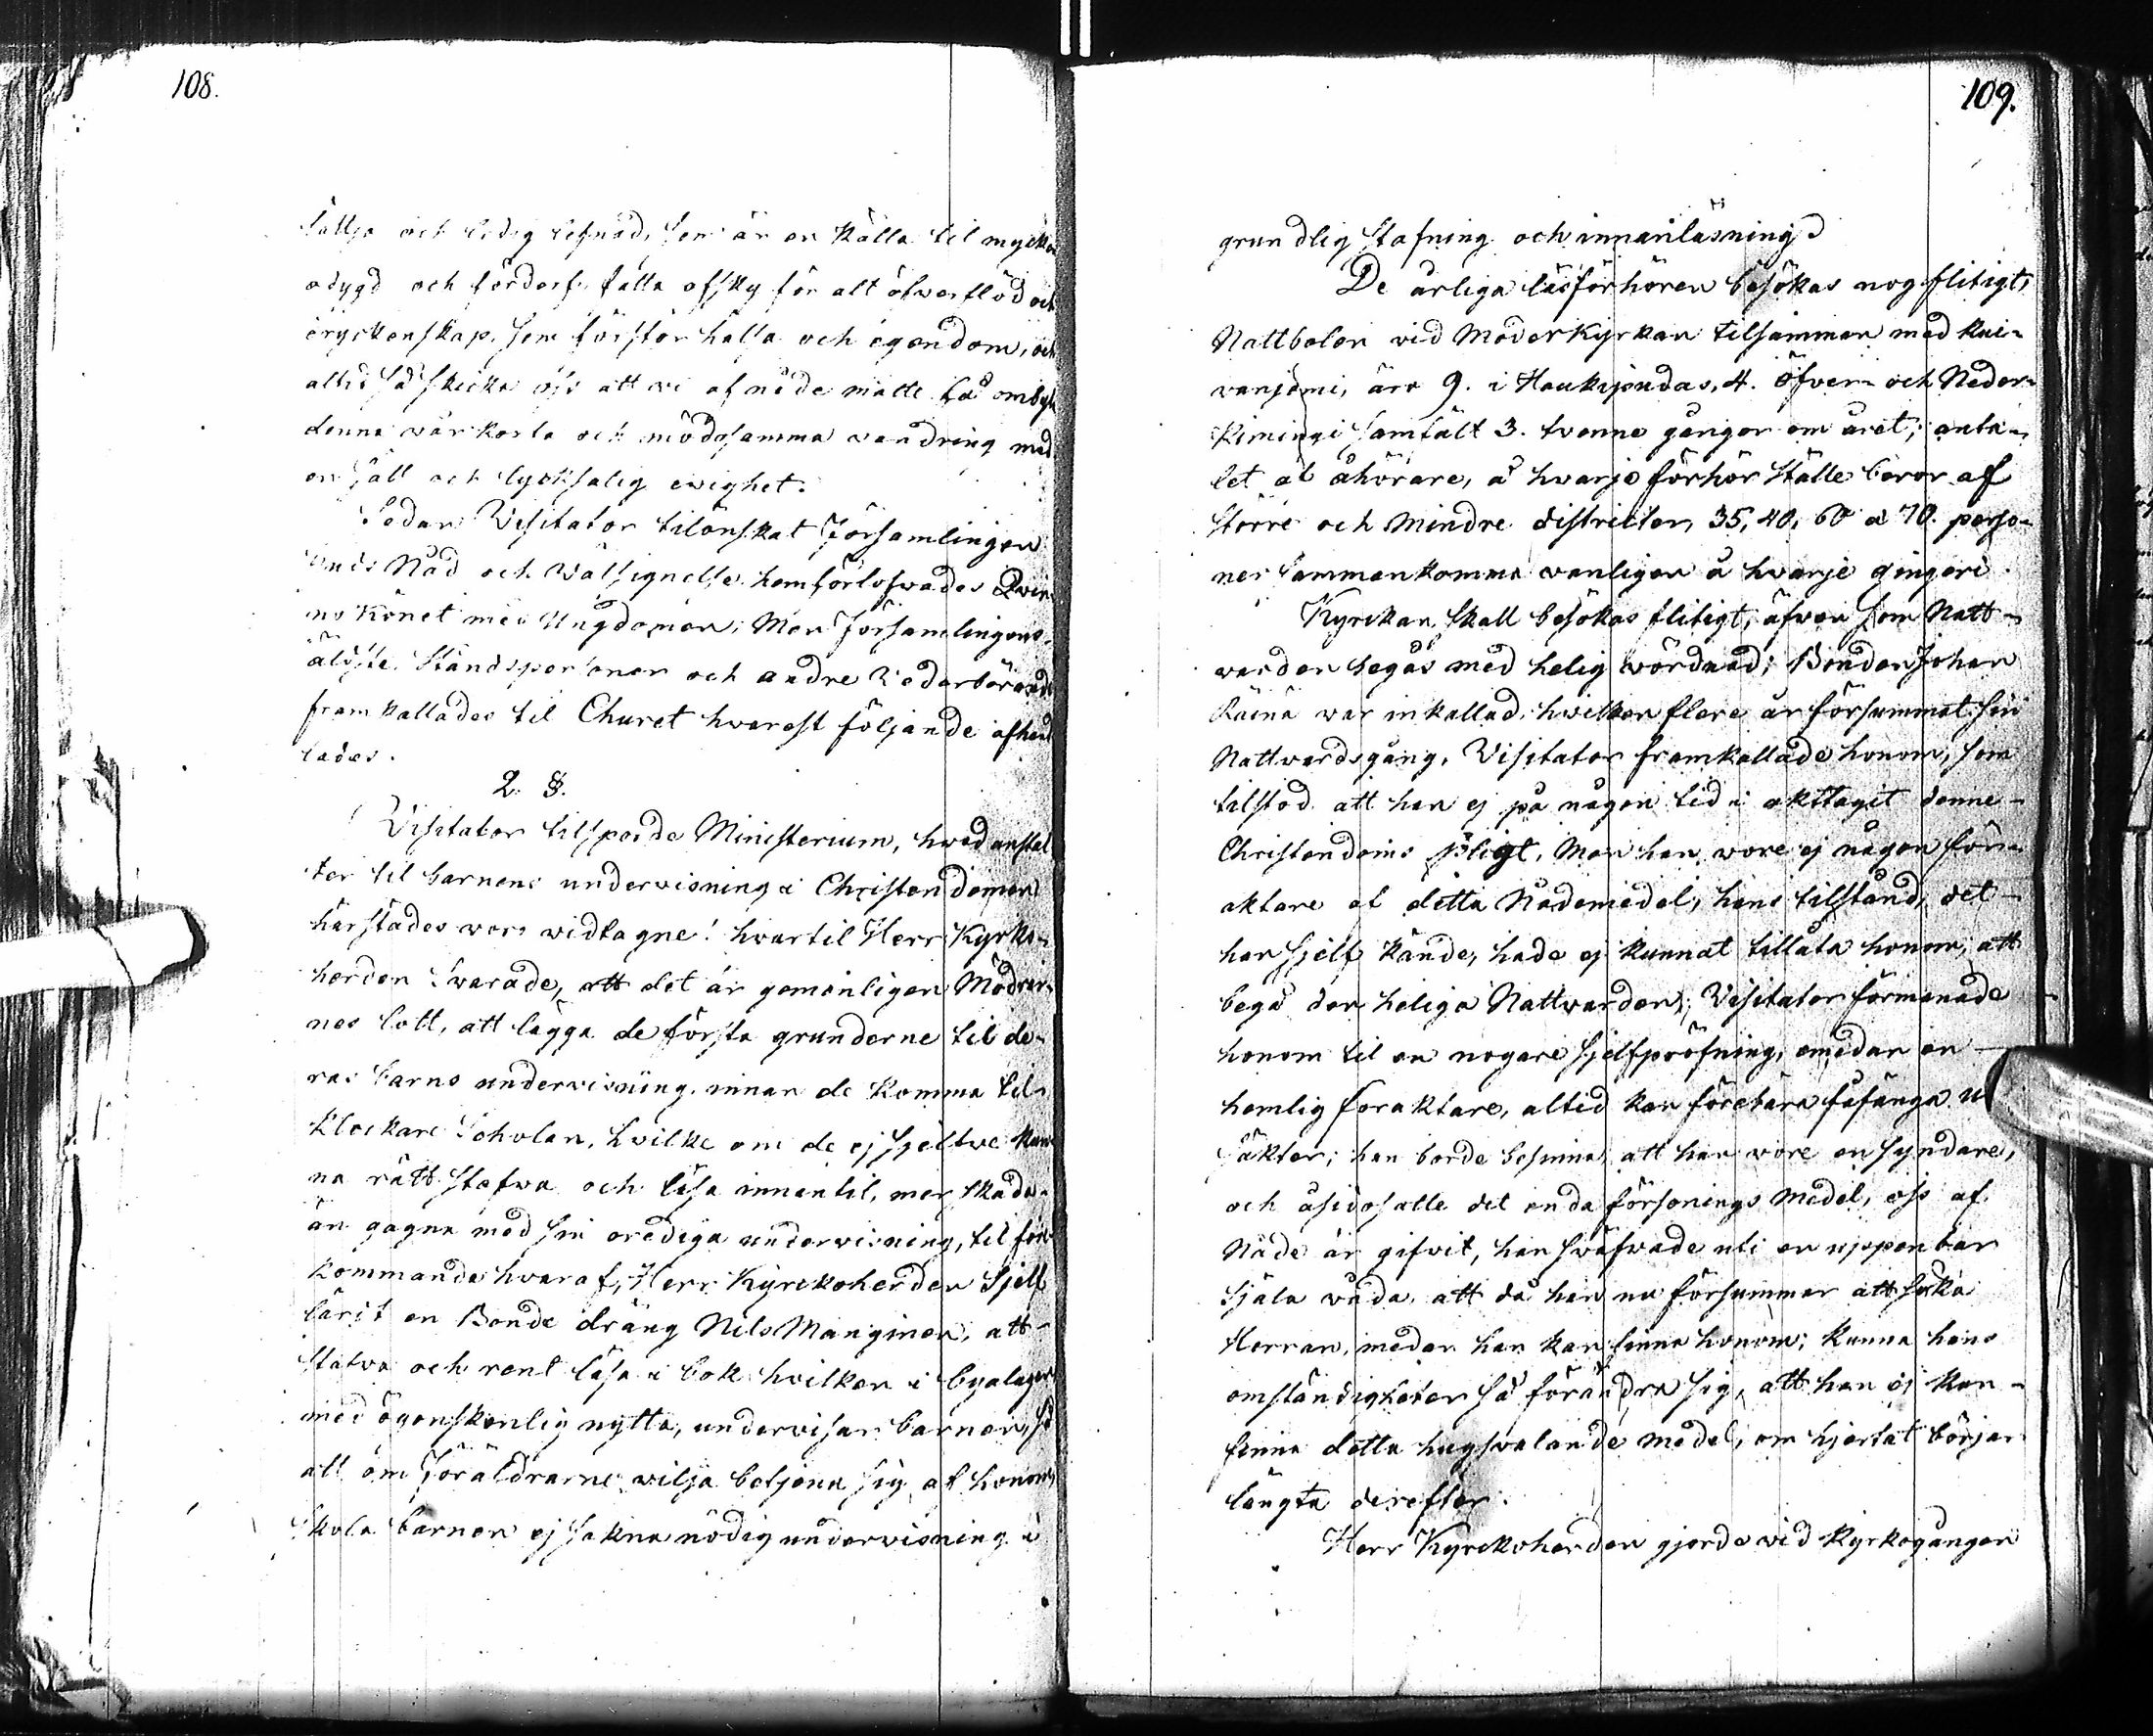 108.
lättja och ledig lefnad, som är en källa til mycken
odygd och förderf, fatta afsky för alt öfverflöd och
dryckenskap, som förstör hälsa och egendom, och
altid så skicka oss att wi af nåde måtte få ombyta
denna wår korta och mödosamma wandring med
en säll och lycksalig ewighet.
Sedan Visitator tilönskat Församlingen
Guds Nåd och Wälsignelse hemförlofwades Qwin-
no Könet med Ungdomen; Men Församlingens
äldste Ståndspersoner och andre Wederbörande
framkallades til Choret hwarest följande afhand
lades.
2. §.
Visitator tilsporde Ministerium, hwad anstal
ter til barnens underwisning i Christendomen
härstädes woro widtagne! hwartil Herr Kyrko-
herden Swarade, att det är gemenligen Mödrar-
nes lott, att lägga de första grunderne til de-
ras barns underwisning, innan de komma til
Klockare Scholan, hvilke om de ej sjelfwe kun
na rätt stafwa och läsa innantil, mer skada
än gagna med sin orediga underwisning, til före
kommande hwaraf, Herr Kyrckoherden Sjelf
lärt en Bonde dräng Nils Manginen, att
stafva och rent läsa i bok hvilken i byalagen
med ögonskenlig nytta, underwisar barnen, så
att om Föräldrarne wilja betjena sig af honom,
Skola barnen ej sakna nödig underwisning i
109.
grundlig stafning och innanläsning
De årliga läsförhören besökas nog flitigt,
Nattbolen wid Moderkyrkan tilsamman med kui-
vanjemi, äro 9. i Haukipudas, 4. öfver och Neder-
Kimingi samfält 3. tvenne gånger om året; anta-
let af åhörare, å hwarje förhör ställe beror af
större och Mindre districter, 35, 40, 60 a 70. perso-
ner sammankomma wanligen å hwarje gingerd
Kyrckan skall besökas flitigt, äfven som Natt-
warden begås med helig wördnad; Bonden Johan
Räinä war inkallad, hwilken flere år försummat sin
Nattwardsgång, Visitator framkallade honom, som
tilstod att han ej på någon tid i akttagit denne
Christendoms pligt, Men han wore ej någon för-
aktare af detta Nådemedel, hans tilstånd, det
han sjelf kände, hade ej kunnat tillåta honom, att
begå den heliga Nattwarden; Visitator förmanade
honom til en nogare sjelfpröfning, emedan en
hemlig föraktare, altid kan förebära fåfänga u
säkter; han borde besinna, att han wore en syndare,
och åsidosatte det enda försonings medel, oss af
Nåde är gifvit, han swäfwade uti en uppenbar
Själa wåda, att då han nu försummar att söka
Herran, medan han kan finna honom; kunna hans
omständigheter så förändra sig, att han ej kan
finna detta hugswalande medel, om hjertat börjar
längta derefter.
Herr Kyrckoherden gjorde wid kyrkogången